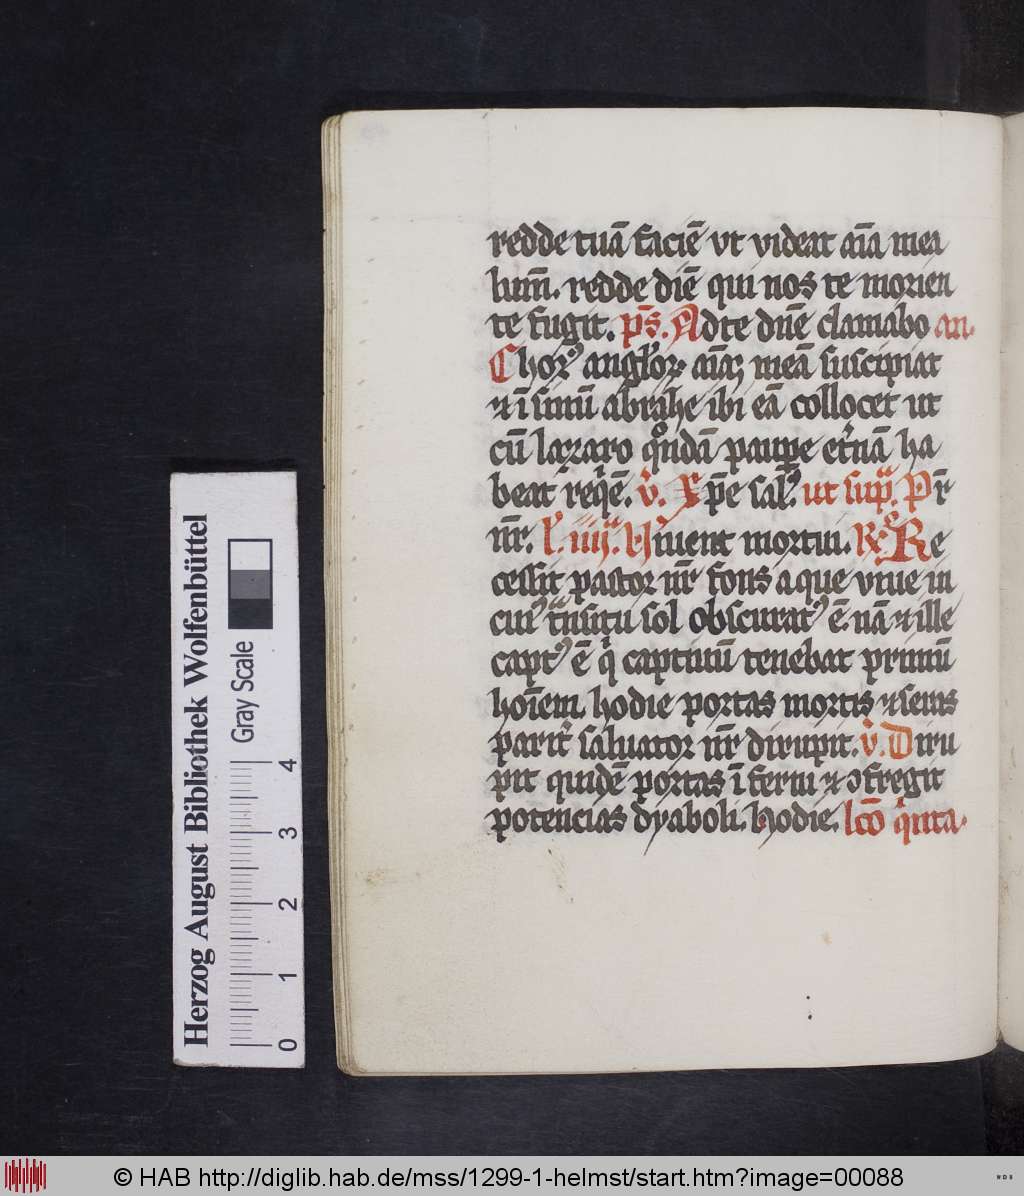 redde tuā faciē vt videat aīa mea
lumē. redde diē qui nos te morien
te fugit. p̄s. Ad te dn̄e clamabo an.
Chorꝰ anglor̄ aīaꝫ meā suscipiat
et ī sinū abrahe ibi eā collocet ut
cū lazaro qͦndā paupe et̓nā ha
beat reqͥē. v̓. Xp̄e salꝰ. ut sup̄ᵃ. Pr̄
nr̄. l̓. iiijᵃ. Viuent mortui. R̸ Re
cessit pastor nr̄ fons aque viue in
cuiꝰ tᵃnsitu sol obscuratꝰ ē nā et ille
captꝰ ē qͥ captiuū tenebat primū
hoīem. hodie portas mortis et seras
parit̓ saluator nr̄ dirupit. v̓. Diru
pit quidē portas īferni et ↄfregit
potencias dyaboli. hodie. lc̄o qͥnta.
Herzog August Bibliothek Wolfenbüttel
Gray Scale
0 1 2 3 4
© HAB http://diglib.hab.de/mss/1299-1-helmst/start.htm?image=00088